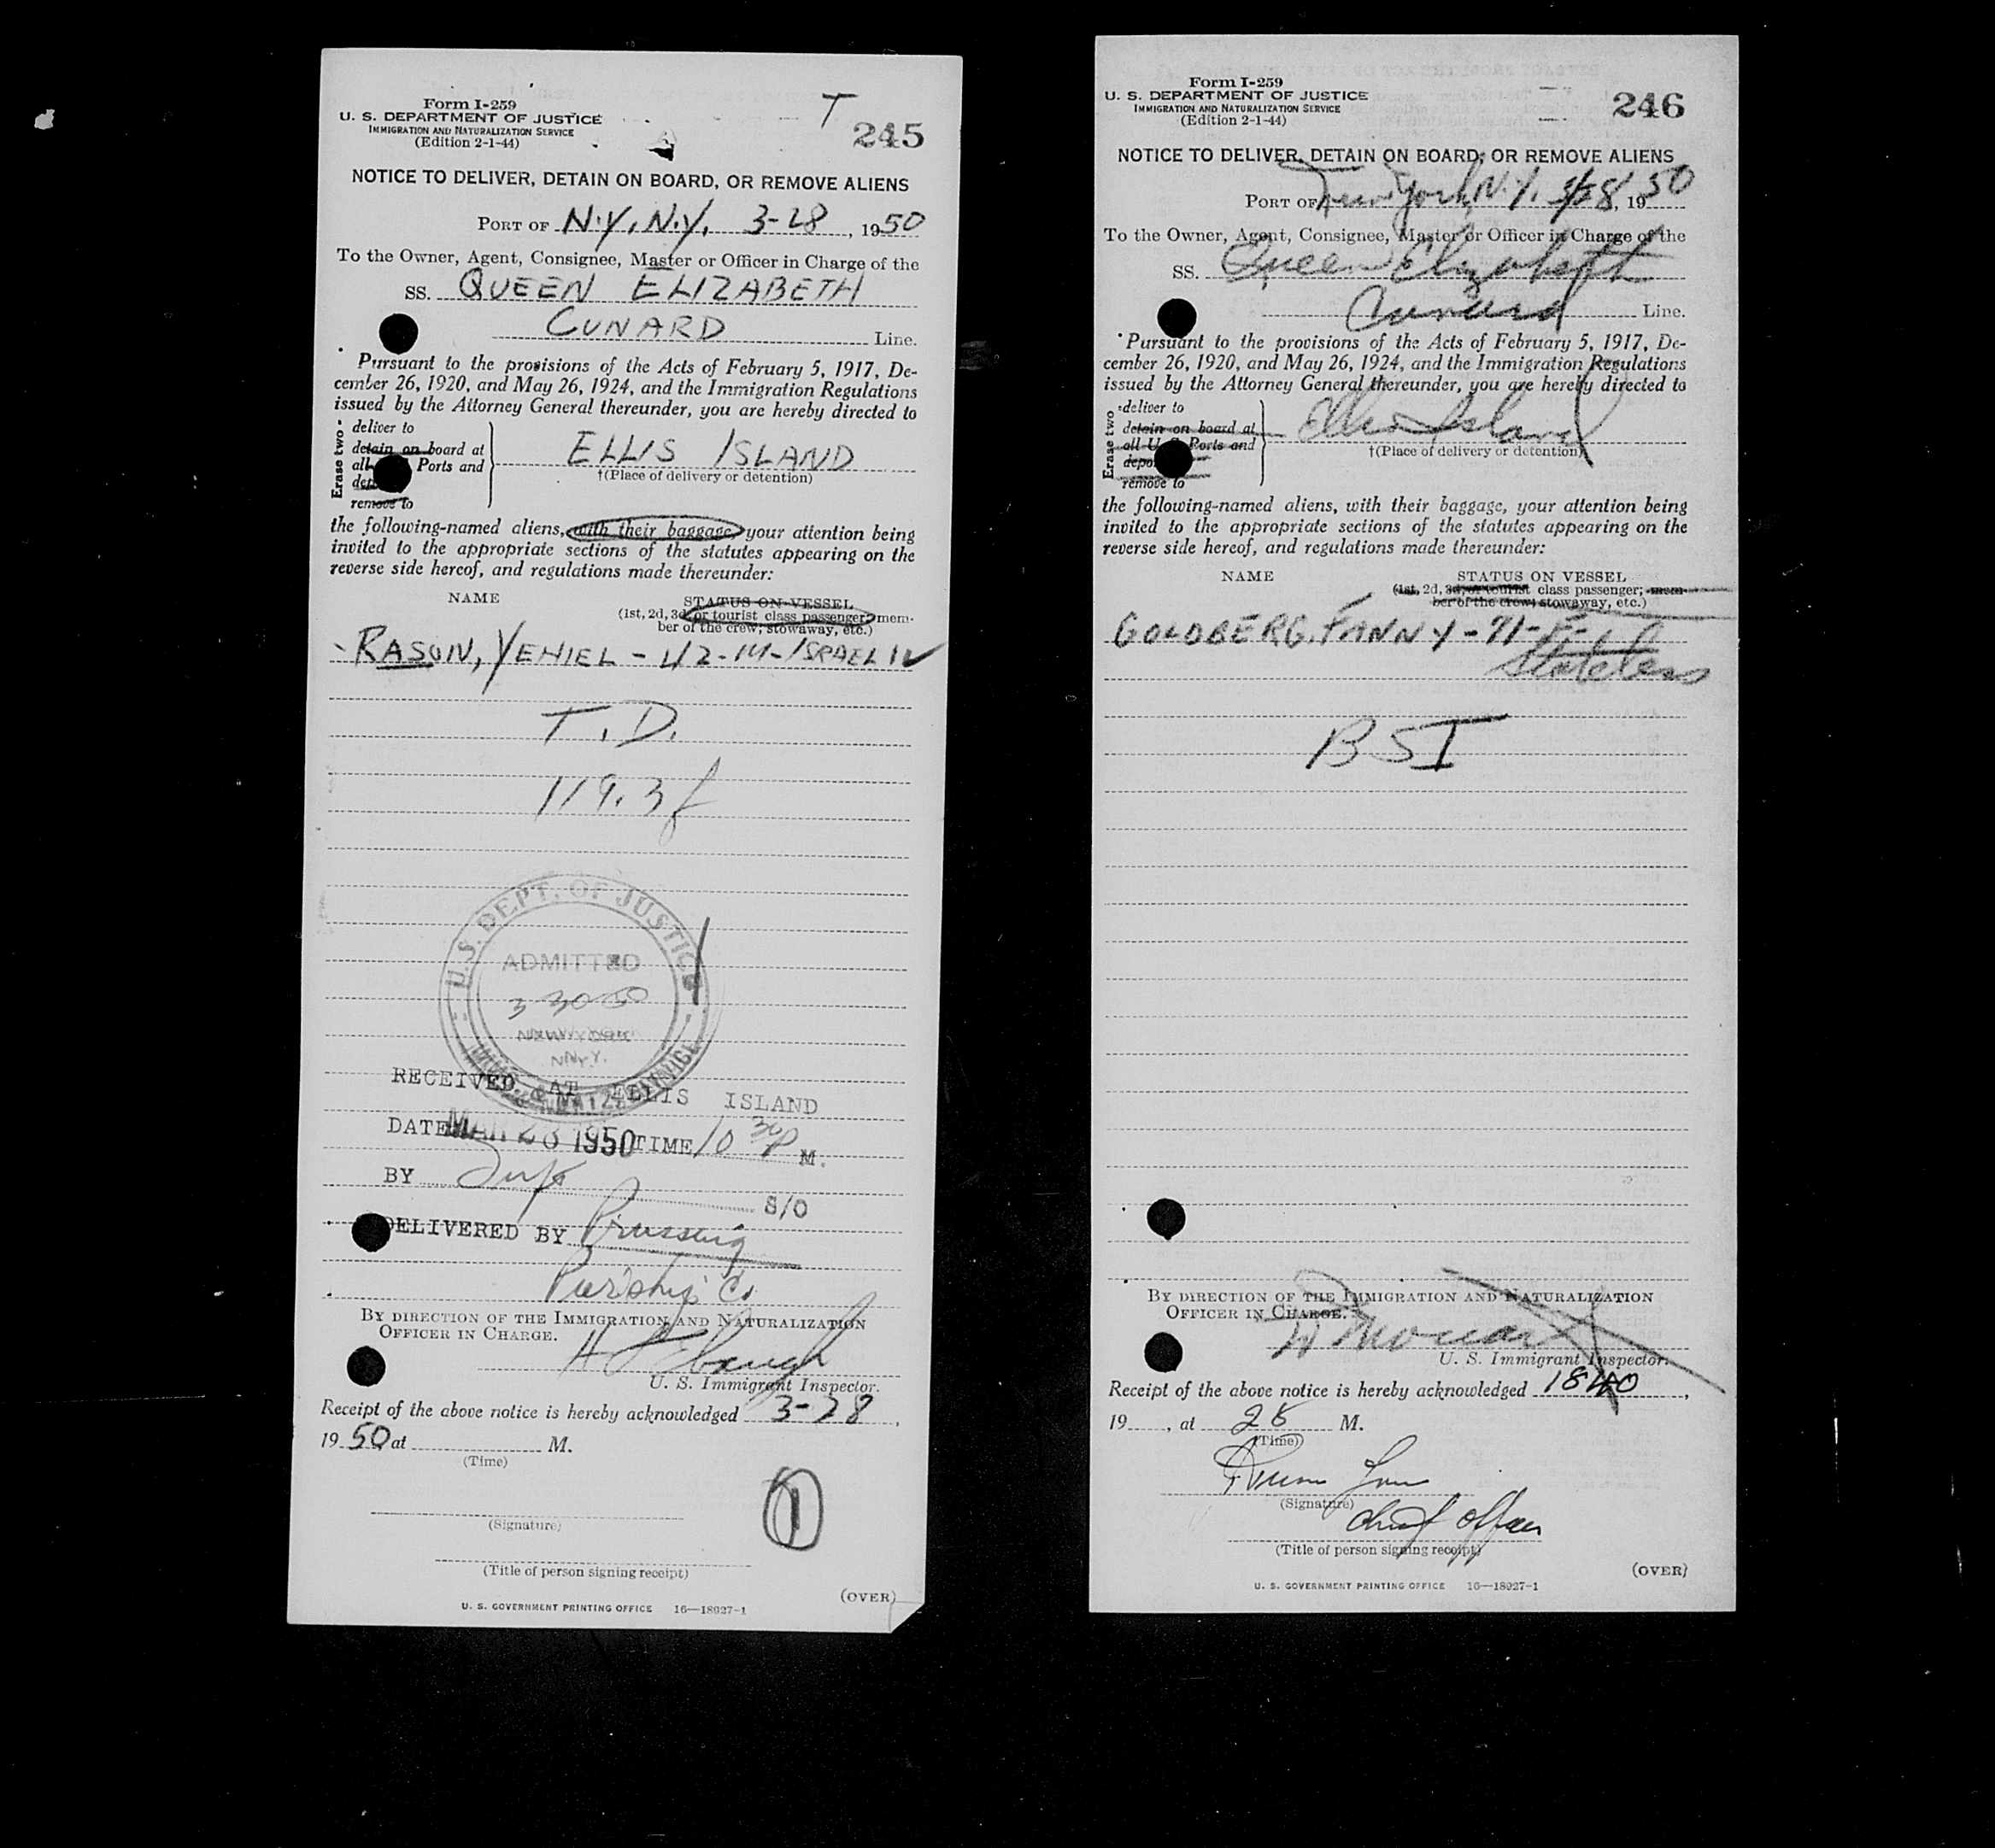 Form I-259
U. S. DEPARTMENT OF JUSTICE
IMMIGRATION AND NATURALIZATION SERVICE
(Edition 2-1-44)
T
245
NOTICE TO DELIVER, DETAIN ON BOARD, OR REMOVE ALIENS
PORT OF N.Y., N.Y. 3-28, 1950
To the Owner, Agent, Consignee, Master or Officer in Charge of the
SS. QUEEN ELIZABETH
CUNARD Line.
Pursuant to the provisions of the Acts of February 5, 1917, De-
cember 26, 1920, and May 26, 1924, and the Immigration Regulations
issued by the Attorney General thereunder, you are hereby directed to
Erase two
deliver to
detain on board at
all Ports and
remove to
ELLIS ISLAND
†(Place of delivery or detention)
the following-named aliens, with their baggage, your attention being
invited to the appropriate sections of the statutes appearing on the
reverse side hereof, and regulations made thereunder:
NAME
STATUS ON VESSEL
(1st, 2d, 3d, or tourist class passenger; mem-
ber of the crew; stowaway, etc.)
RASON, YEHIEL - 42-M-ISRAELI
T.D.
119.3f
U.S. DEPT. OF JUSTICE
ADMITTED
3 30 50
NEW YORK
N.Y.
RECEIVED AT ELLIS ISLAND
DATE MAR 28 1950 TIME 10 30 P M.
BY S/O
DELIVERED BY
BY DIRECTION OF THE IMMIGRATION AND NATURALIZATION
OFFICER IN CHARGE.
U. S. Immigrant Inspector.
Receipt of the above notice is hereby acknowledged 3-28,
1950 at M.
(Time)
1
(Signature)
(Title of person signing receipt)
(OVER)
U. S. GOVERNMENT PRINTING OFFICE 16—18927-1
Form I-259
U. S. DEPARTMENT OF JUSTICE
IMMIGRATION AND NATURALIZATION SERVICE
(Edition 2-1-44)
246
NOTICE TO DELIVER, DETAIN ON BOARD, OR REMOVE ALIENS
PORT OF New York, N.Y. 3/28, 1950
To the Owner, Agent, Consignee, Master or Officer in Charge of the
SS. Queen Elizabeth
Cunard Line.
Pursuant to the provisions of the Acts of February 5, 1917, De-
cember 26, 1920, and May 26, 1924, and the Immigration Regulations
issued by the Attorney General thereunder, you are hereby directed to
Erase two
deliver to
detain on board at
all U. S. Ports and
remove to
Ellis Island
†(Place of delivery or detention)
the following-named aliens, with their baggage, your attention being
invited to the appropriate sections of the statutes appearing on the
reverse side hereof, and regulations made thereunder:
NAME
STATUS ON VESSEL
(1st, 2d, 3d, or tourist class passenger; mem-
ber of the crew; stowaway, etc.)
GOLDBERG, FANNY - 71-F-
Stateless
BSI
BY DIRECTION OF THE IMMIGRATION AND NATURALIZATION
OFFICER IN CHARGE.
U. S. Immigrant Inspector.
Receipt of the above notice is hereby acknowledged 1840,
19, at 28 M.
(Time)
(Signature)
Chief Officer
(Title of person signing receipt)
(OVER)
U. S. GOVERNMENT PRINTING OFFICE 16—18927-1